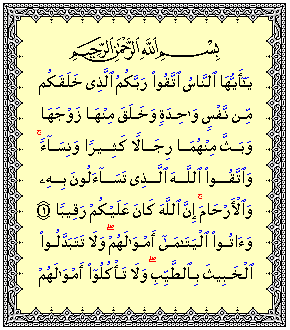 بِسْمِ ٱللَّهِ ٱلرَّحْمَٰنِ ٱلرَّحِيمِ
يَٰٓأَيُّهَا ٱلنَّاسُ ٱتَّقُوا۟ رَبَّكُمُ ٱلَّذِى خَلَقَكُم
مِّن نَّفْسٍ وَٰحِدَةٍ وَخَلَقَ مِنْهَا زَوْجَهَا
وَبَثَّ مِنْهُمَا رِجَالًا كَثِيرًا وَنِسَآءً ۚ
وَٱتَّقُوا۟ ٱللَّهَ ٱلَّذِى تَسَآءَلُونَ بِهِۦ
وَٱلْأَرْحَامَ ۚ إِنَّ ٱللَّهَ كَانَ عَلَيْكُمْ رَقِيبًا ١
وَءَاتُوا۟ ٱلْيَتَٰمَىٰٓ أَمْوَٰلَهُمْ ۖ وَلَا تَتَبَدَّلُوا۟
ٱلْخَبِيثَ بِٱلطَّيِّبِ ۖ وَلَا تَأْكُلُوٓا۟ أَمْوَٰلَهُمْ